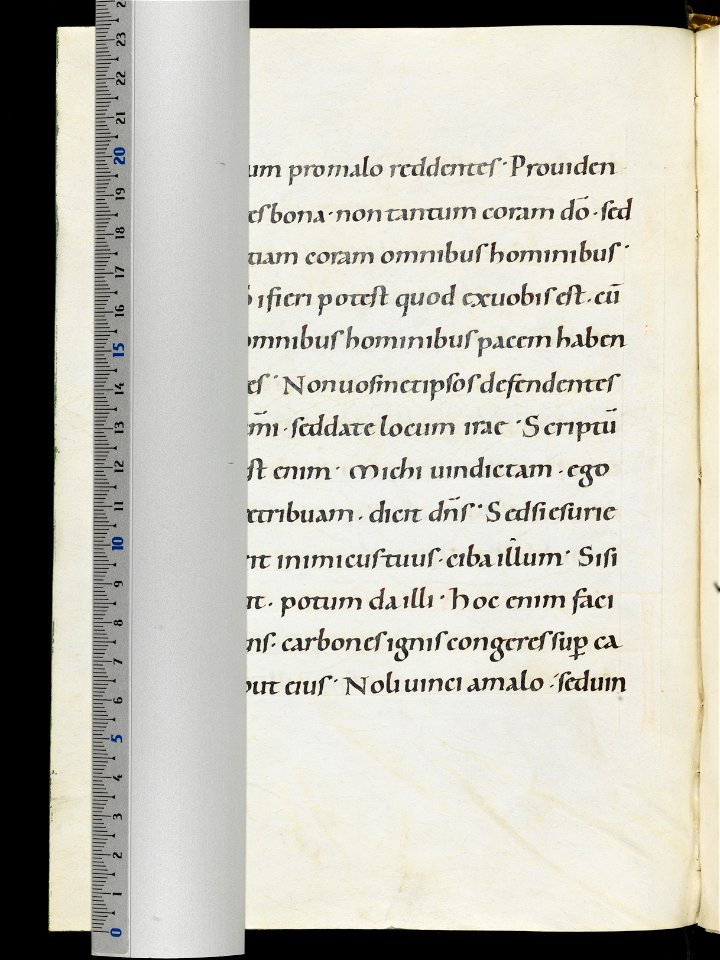 um promalo reddentes· Prouiden
es bona· non tantum coram dō· sed
tiam coram omnibus hominibus·
si fieri potest quod exuobis est· cū
omnibus hominibus pacem haben
es· Nonuosmetipsos defendentes
mi· seddate locum irae· Scriptū
st enim· Michi uindictam· ego
etribuam· dicit dn̄s· Sedsiesurie
rit inimicus tuus· ciba illum· Sisi
it· potum da illi· hoc enim faci
ns· carbones ignis congeres sup̄ ca
put eius· Noli uinci amalo· seduin